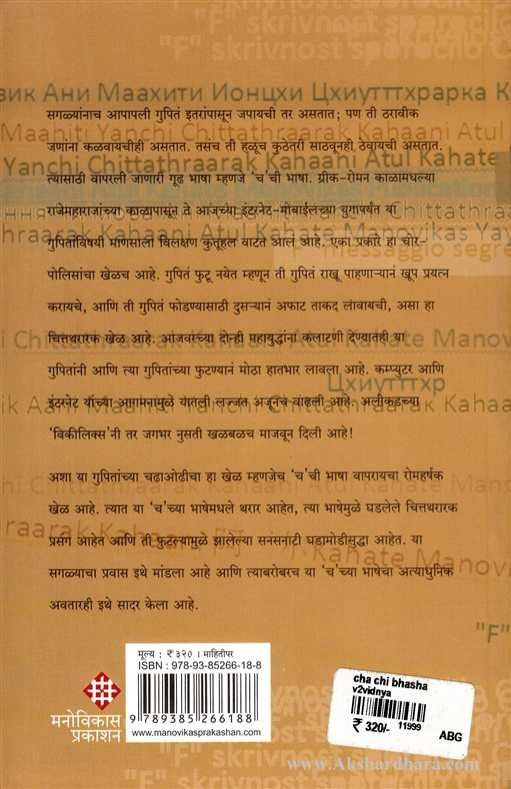 "F" skrivnost sporočilo
зик Ани Маахити Ионцхи Цхиутттхрарка К
सगळ्यांनाच आपापली गुपितं इतरांपासून जपायची तर असतात; पण ती ठरावीक
Maahiti Yanchi Chittathraarak Kahaani Atul
जणांना कळवायचीही असतात. तसंच ती हळूच कुठेतरी साठवूनही ठेवायची असतात.
Yanchi Chittathraarak Kahaani Atul Kahate
त्यासाठी वापरली जाणारी गूढ भाषा म्हणजे 'च'ची भाषा. ग्रीक-रोमन काळामधल्या
राजेमहाराजांच्या काळापासून ते आजच्या इंटरनेट-मोबाईलच्या युगापर्यंत या
hraarak Kahaani Atul Kahate Manovikas Yay
गुपितांविषयी माणसाला विलक्षण कुतूहल वाटत आलं आहे. एका प्रकारे हा चोर-
messaggio segre
पोलिसांचा खेळच आहे. गुपितं फुटू नयेत म्हणून ती गुपितं राखू पाहणाऱ्यानं खूप प्रयत्न
करायचे, आणि ती गुपितं फोडण्यासाठी दुसऱ्यानं अफाट ताकद लावायची, असा हा
चित्तथरारक खेळ आहे. आजवरच्या दोन्ही महायुद्धांना कलाटणी देण्यातही या
i Chittathraarak Kahaani Atul Kahate Manov
गुपितांनी आणि त्या गुपितांच्या फुटण्यानं मोठा हातभार लावला आहे. कम्प्युटर आणि
Цхиутттхр
इंटरनेट यांच्या आगमनामुळे यातली लज्जत अजूनच वाढली आहे. अलीकडच्या
'विकीलिक्स'नी तर जगभर नुसती खळबळच माजवून दिली आहे!
अशा या गुपितांच्या चढाओढीचा हा खेळ म्हणजेच 'च'ची भाषा वापरायचा रोमहर्षक
खेळ आहे. त्यात या 'च'च्या भाषेमधले थरार आहेत, त्या भाषेमुळे घडलेले चित्तथरारक
प्रसंग आहेत आणि ती फुटल्यामुळे झालेल्या सनसनाटी घडामोडीसुद्धा आहेत. या
सगळ्याचा प्रवास इथे मांडला आहे आणि त्याबरोबरच या 'च'च्या भाषेचा अत्याधुनिक
अवतारही इथे सादर केला आहे.
"F"
मूल्य : ₹ ३२० । माहितीपर
ISBN : 978-93-85266-18-8
9 789385 266188
www.manovikasprakashan.com
मनोविकास
प्रकाशन
cha chi bhasha
v2vidnya
₹ 320/- 11999
ABG
www.Akshardhara.com